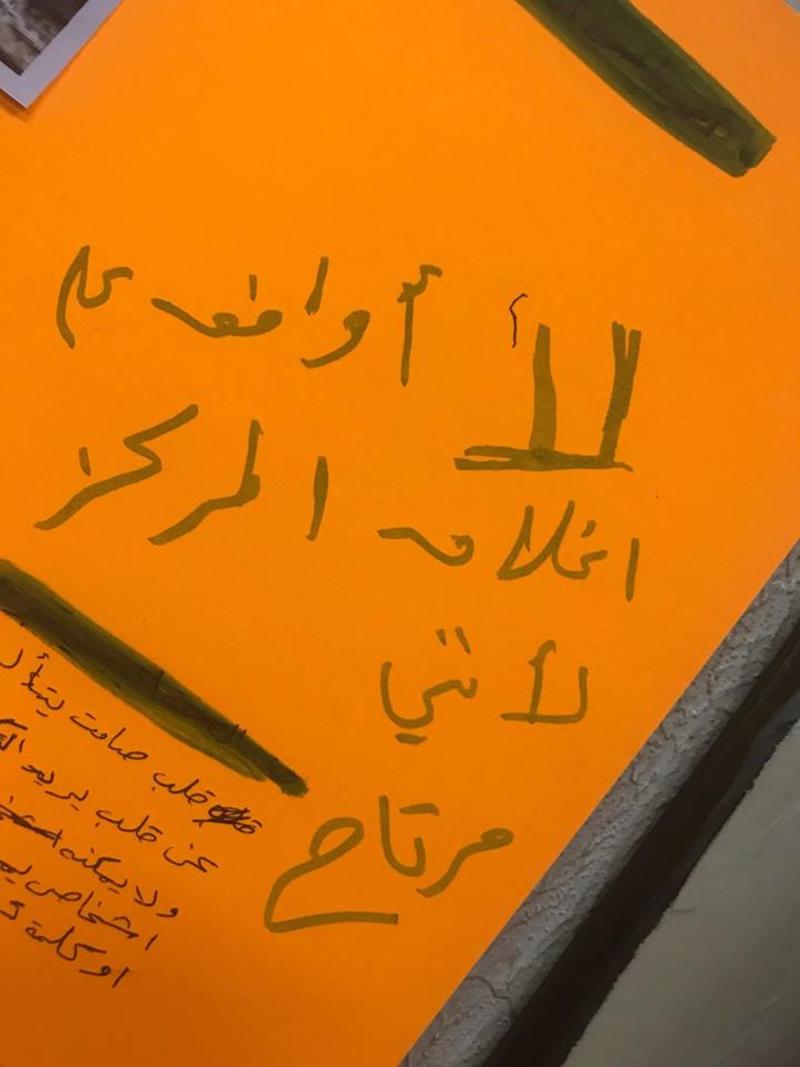 لا أوافق على
اغلاق المركز
لأنني
مرتاح
قلب صامت يتألم
عن قلب يريد
ولا يمكنه
اشخاص
او كلمة